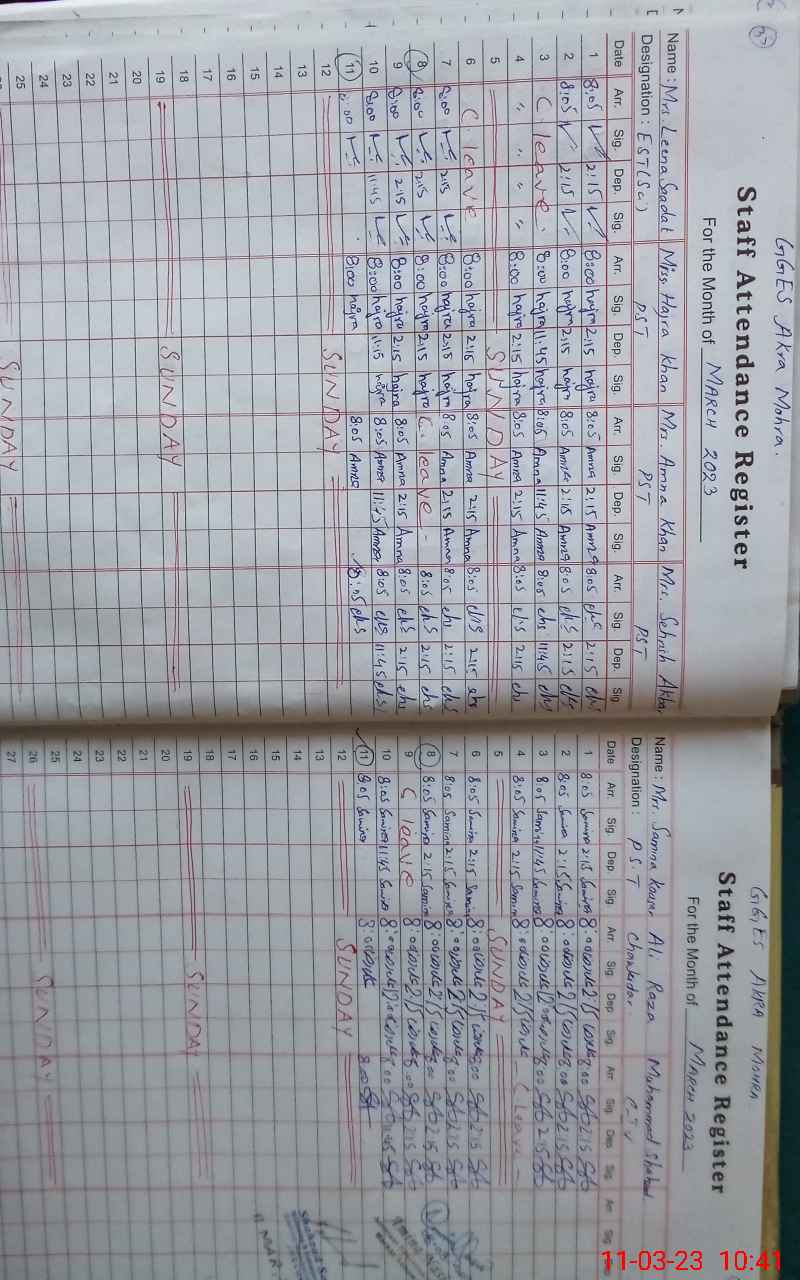 GGES Akra Mohra.
Staff Attendance Register
For the Month of MARCH 2023
Name : Mrs. Leena Saadat Miss Hajra Khan Mrs. Amna Khan Mrs. Sehnih Akbar
Designation : EST(Sc) PST PST PST
Date Arr. Sig. Dep. Sig. Arr. Sig. Dep. Sig. Arr. Sig. Dep. Sig. Arr. Sig. Dep. Sig
1 8:05 2:15 8:00 hajra 2:15 hajra 8:05 Amna 2:15 Amna 8:05 ehs 2:15 ehs
2 8:05 2:15 8:00 hajra 2:15 hajra 8:05 Amna 2:15 Amna 8:05 ehs 2:15 ehs
3 C. leave. 8:00 hajra 11:45 hajra 8:05 Amna 11:45 Amna 8:05 ehs 11:45 ehs
4 " " " " 8:00 hajra 2:15 hajra 8:05 Amna 2:15 Amna 8:05 ehs 2:15 ehs
5 SUNDAY
6 C. leave 8:00 hajra 2:15 hajra 8:05 Amna 2:15 Amna 8:05 ehs 2:15 ehs
7 8:00 2:15 8:00 hajra 2:15 hajra 8:05 Amna 2:15 Amna 8:05 ehs 2:15 ehs
8 8:00 2:15 8:00 hajra 2:15 hajra C. leave - 8:05 ehs 2:15 ehs
9 8:00 2:15 8:00 hajra 2:15 hajra 8:05 Amna 2:15 Amna 8:05 ehs 2:15 ehs
10 8:00 11:45 8:00 hajra 11:15 hajra 8:05 Amna 11:45 Amna 8:05 ehs 11:45 ehs
11 8:00 8:00 hajra 8:05 Amna 8:05 ehs
12 SUNDAY
13
14
15
16
17
18
19 SUNDAY
20
21
22
23
24
25
SUNDAY
GGES AKRA MOHRA
Staff Attendance Register
For the Month of MARCH 2023
Name : Mrs. Samina Kousar Ali Raza Muhammad Shahzad
Designation : P.S.T Chowkidar C-IV
Date Arr. Sig. Dep. Sig. Arr. Sig. Dep. Sig. Arr. Sig. Dep. Sig. Arr Sig.
1 8:05 Samina 2:15 Samina 8:00 2:15 8:00 2:15
2 8:05 Samina 2:15 Samina 8:00 2:15 8:00 2:15
3 8:05 Samina 11:45 Samina 8:00 12:00 8:00 2:15
4 8:05 Samina 2:15 Samina 8:00 2:15 - C Leave -
5 SUNDAY
6 8:05 Samina 2:15 Samina 8:00 2:15 8:00 2:15
7 8:05 Samina 2:15 Samina 8:00 2:15 8:00 2:15
8 8:05 Samina 2:15 Samina 8:00 2:15 8:00 2:15
9 C leave 8:00 2:15 8:00 2:15
10 8:05 Samina 11:45 Samina 8:00 12:00 8:00 11:45
11 8:05 Samina 8:00 8:00
12 SUNDAY
13
14
15
16
17
18
19 SUNDAY
20
21
22
23
24
25
26 SUNDAY
27
11-03-23 10:41